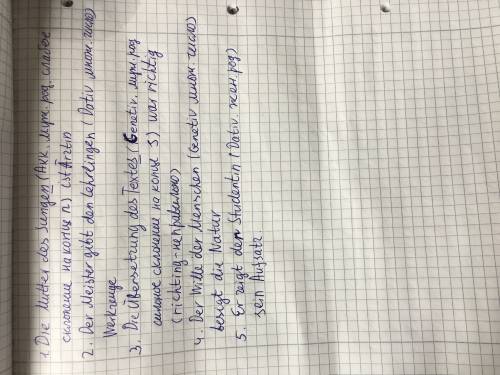 1. Die Mutter des Jungen (Акк. мужс. род. слабое
склонение на конце n) ist Ärztin
2. Der Meister gibt den Lehrlingen (Dativ множ. число)
Werkzeuge
3. Die Übersetzung des Textes (Genetiv. муж. род
сильное склонение на конце s) war richtig
(richting - неправильно)
4. Der Wille der Menschen (Genetiv множ. число)
besigt die Natur
5. Er zeigt der Studentin (Dativ. жен. род)
sein Aufsatz